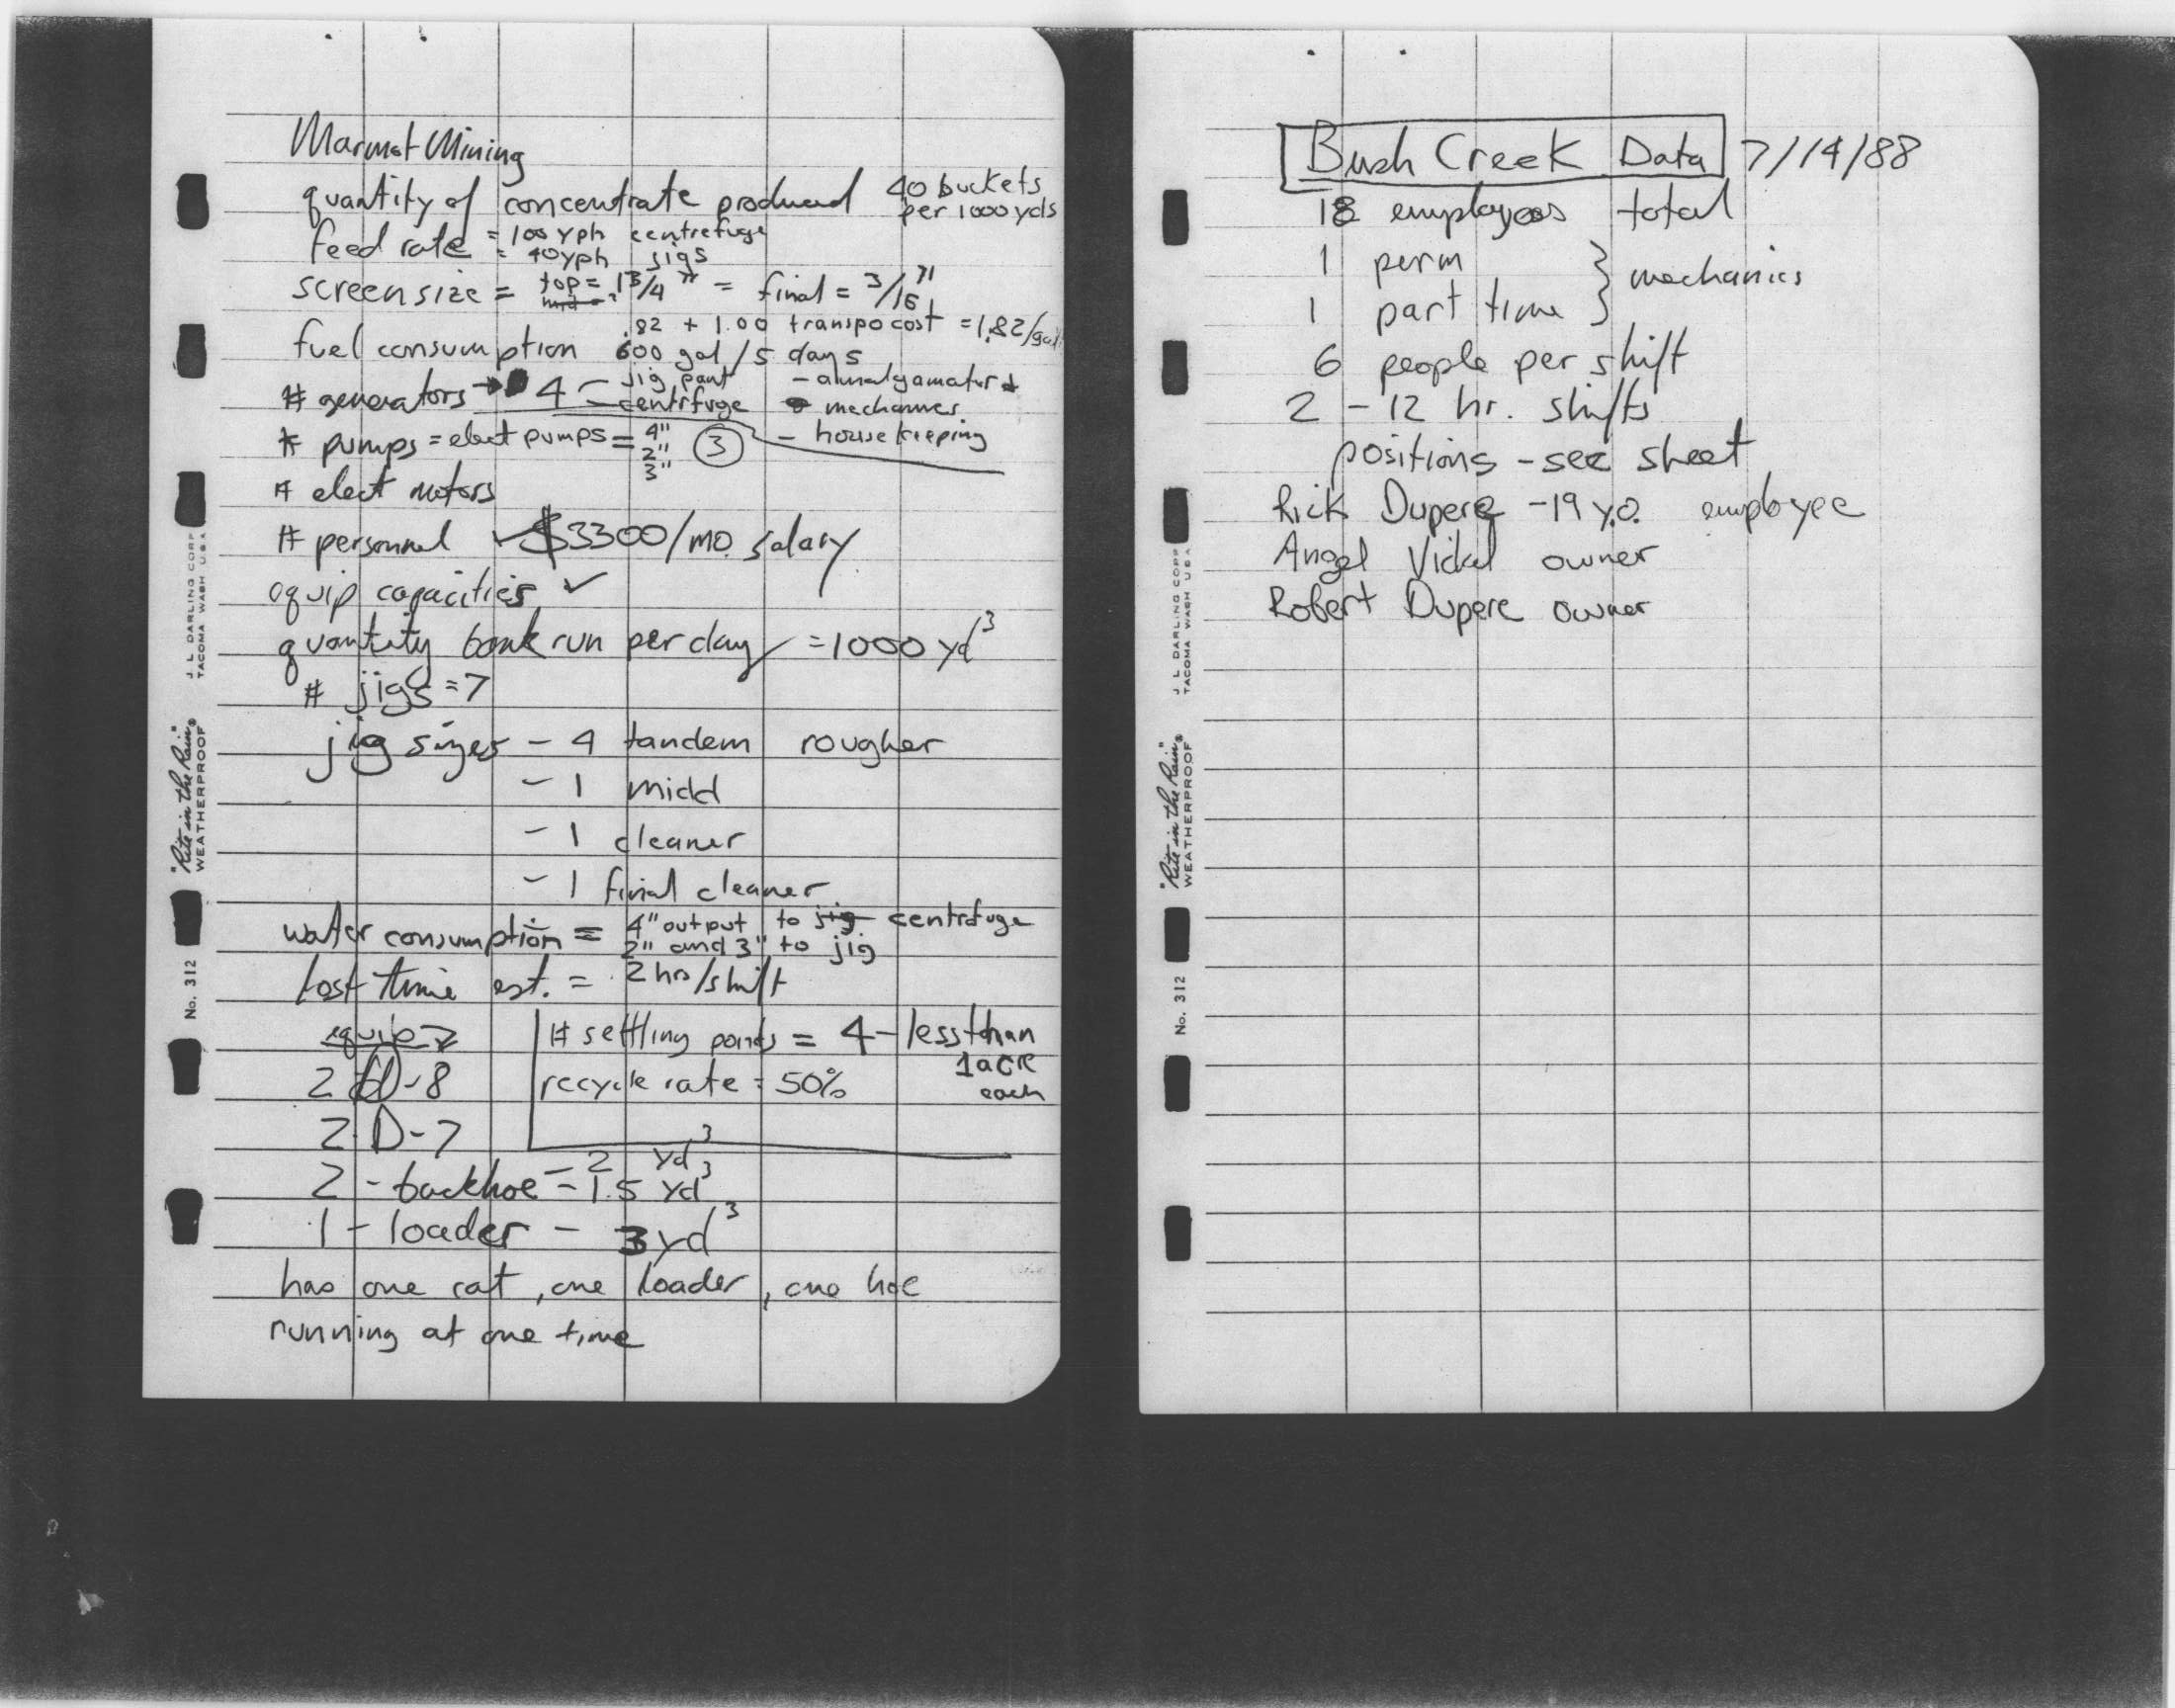 Marmot Mining
quantity of concentrate produced 40 buckets per 1000 yds
feed rate = 100 yph centrefuge
= 40 yph jigs
screen size = top = 1 3/4" = final = 3/16"
mid =
.82 + 1.00 transpo cost = 1.82/gal
fuel consumption 600 gal/5 days
# generators → 4 - jig pant - amalgamator &
- centrifuge mechanics
- house keeping
# pumps = elect pumps = 4" 2" 3" 3
# elect motors
# personnel ✓ $3300/mo. salary
equip capacities ✓
quantity bank run per day = 1000 yd³
# jigs = 7
jig sizes - 4 tandem rougher
- 1 midd
- 1 cleaner
- 1 final cleaner
water consumption = 4" output to jig centrifuge
2" and 3" to jig
lost time est. = 2 hrs/shift
equip
# settling ponds = 4 - less than 1 acre each
recycle rate = 50%
2 D-8
2 D-7
2 - backhoe - 2 yd³
- 1.5 yd³
1 - loader - 3 yd³
has one cat, one loader, one hoe
running at one time
J. L. DARLING CORP.
TACOMA WASH U.S.A.
"Rite in the Rain"
WEATHERPROOF
No. 312
Bush Creek Data 7/14/88
18 employees total
1 perm } mechanics
1 part time
6 people per shift
2 - 12 hr. shifts
positions - see sheet
Rick Dupere - 19 y.o. employee
Angel Vidal owner
Robert Dupere owner
J. L. DARLING CORP.
TACOMA WASH U.S.A.
"Rite in the Rain"
WEATHERPROOF
No. 312